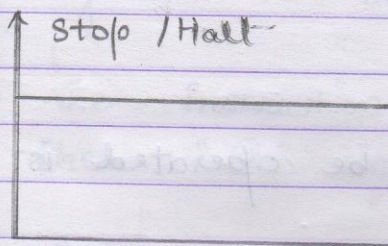 Stop / Halt